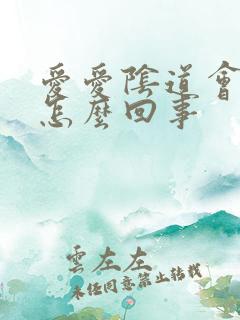 愛愛陰道會
怎麼回事
雲左左
未經同意禁止轉載